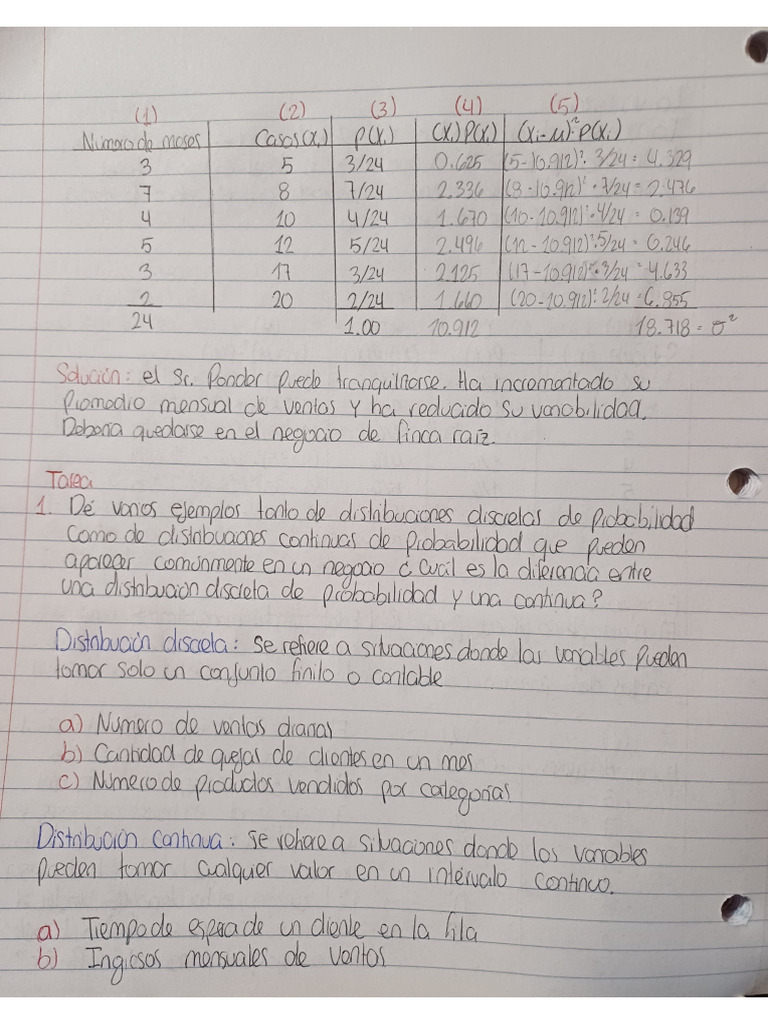 (1) (2) (3) (4) (5)
Numero de meses Casas (Xi) P(Xi) (Xi) P(Xi) (Xi-μ)² P(Xi)
3 5 3/24 0.625 (5-10.912)² · 3/24 = 4.329
7 8 7/24 2.336 (8-10.912)² · 7/24 = 2.476
4 10 4/24 1.670 (10-10.912)² · 4/24 = 0.139
5 12 5/24 2.496 (12-10.912)² · 5/24 = 0.246
3 17 3/24 2.125 (17-10.912)² · 3/24 = 4.633
2 20 2/24 1.660 (20-10.912)² · 2/24 = 6.855
24 1.00 10.912 18.718 = σ²
Solución: el Sr. Ponder puede tranquilizarse. Ha incrementado su
promedio mensual de ventas y ha reducido su variabilidad.
Deberia quedarse en el negocio de finca raíz.
Tarea
1. Dé varios ejemplos tanto de distribuciones discretas de probabilidad
como de distribuciones continuas de probabilidad que pueden
aparecer comúnmente en un negocio ¿Cuál es la diferencia entre
una distribución discreta de probabilidad y una continua?
Distribución discreta: Se refiere a situaciones donde las variables pueden
tomar solo un conjunto finito o contable
a) Numero de ventas diarias
b) Cantidad de quejas de clientes en un mes
c) Número de productos vendidos por categorías
Distribución continua: Se refiere a situaciones donde las variables
pueden tomar cualquier valor en un intérvalo continuo.
a) Tiempo de espera de un cliente en la fila
b) Ingresos mensuales de ventas